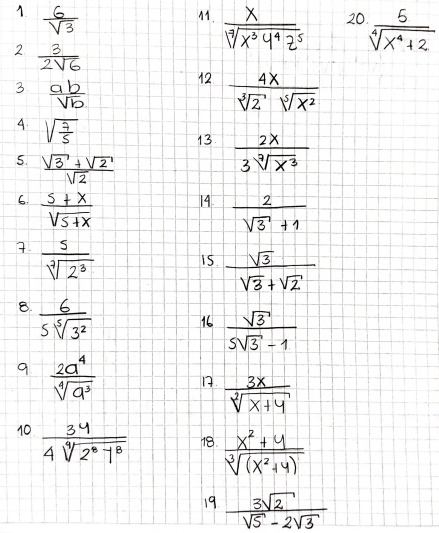 1. 6/√3
2. 3/(2√6)
3 ab/√b
4. √(7/5)
5. (√3 + √2)/√2
6. (5+x)/√(5+x)
7. 5/⁷√(2³)
8. 6/(5 ⁵√(3²))
9 2a⁴/⁴√(a³)
10. 34/(4 ⁹√(2⁸ 7⁸))
11. x/⁷√(x³ y⁴ z⁵)
12 4x/(³√2 ⁵√(x²))
13 2x/(3 ⁷√(x³))
14 2/(√3 + 1)
15. √3/(√3 + √2)
16 √3/(5√3 - 1)
17. 3x/²√(x+y)
18. (x² + y)/³√((x²+y))
19 3√2/(√5 - 2√3)
20. 5/⁴√(x⁴+2)